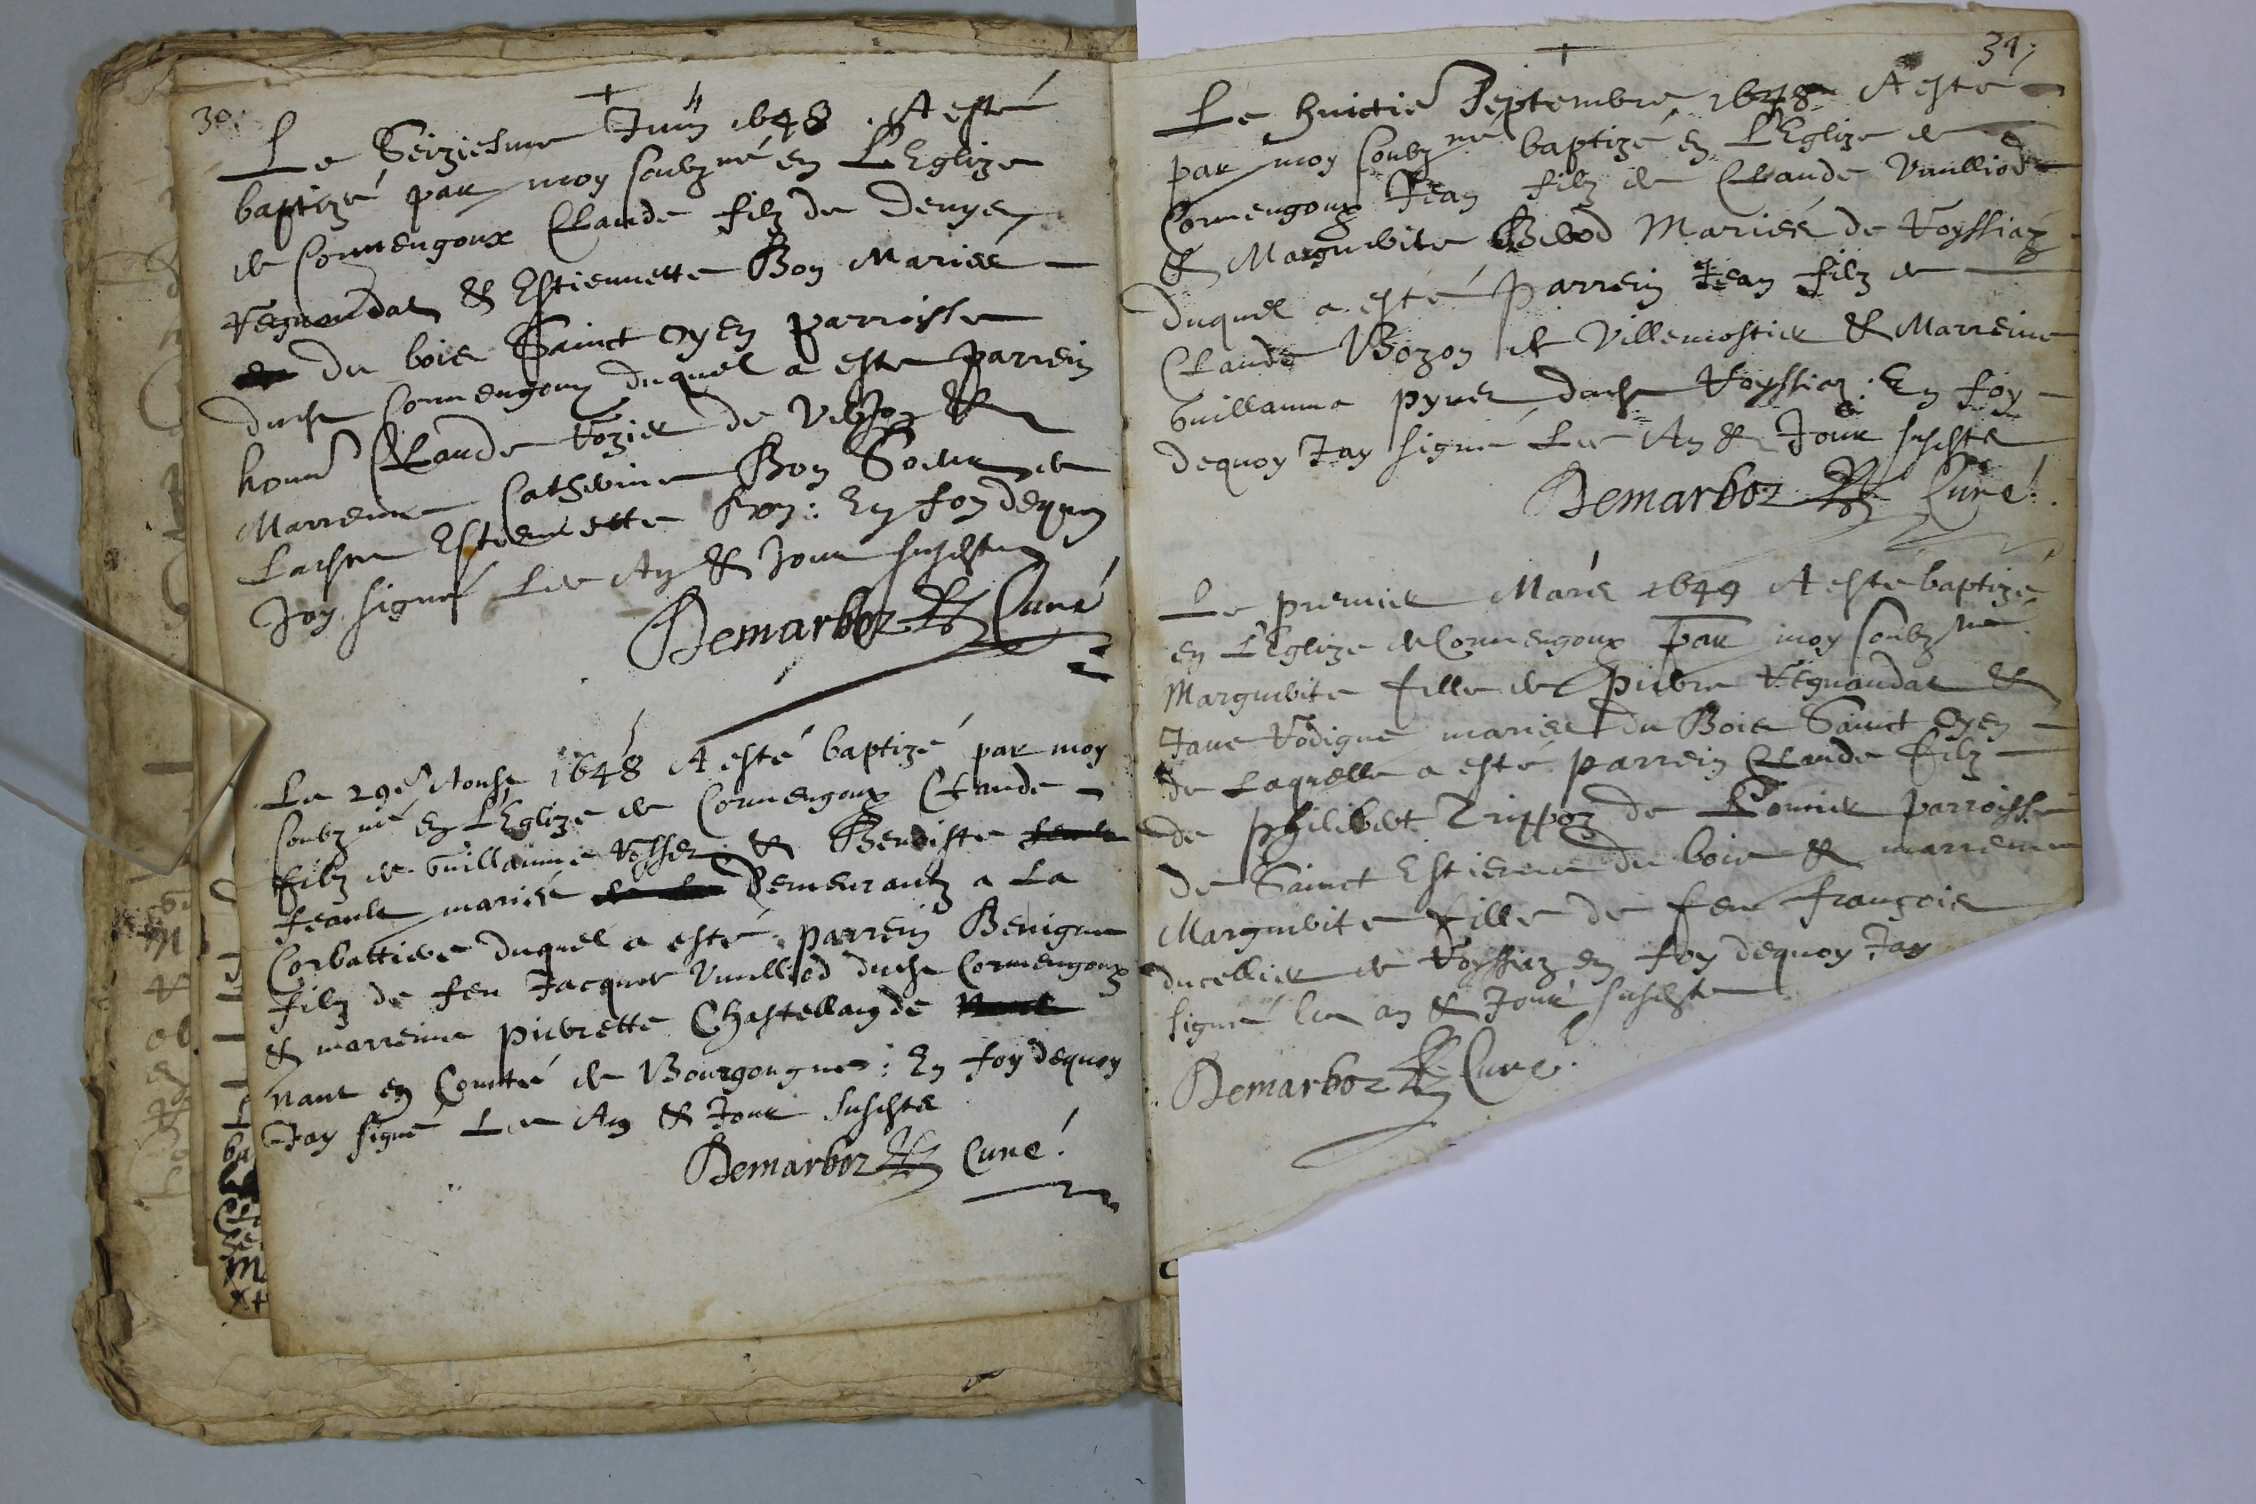 30.
Le Seiziesme Juin 1648. A esté
baptizé par moy soubz né en L'Eglize
de Cormengoux Claude filz de Denys
Vegnandat & Estiennette Bon Mariés
du bois Sainct Oyen parroisse
dudt Cormengoux duquel a esté parrein
Claude Vozier de
Marrenne Catherine Bon Soeur de
Ladte Estiennette Bon : En foy dequoy
Jay signé Les An & Jour susdits
Demarboz Curé
Le 29e Aoust 1648 A esté baptizé par moy
soubz né en L'Eglize de Cormengoux Claude
filz de Guillaume & Benoiste
feaule mariés Demeurantz a La
Corbatiere duquel a esté parrein Benigne
filz de feu Jacques Vuilliod dudt Cormengoux
& marreinne pierrette Chastellain de
nant en Comté de Bourgongne : En foy dequoy
Jay signé Les An & Jour susdits
Demarboz Curé
31
Le huictie Septembre 1648 A esté
par moy soubz né baptizé en L'Eglize de
Cormengoux Jean filz de Claude Vuilliod
& Marguerite Mariés de Voyssiaz
Duquel a esté parrein Jean filz de
Claude Bozon de Villemostier & Marreine
Guillauma pyner dudt Voyssiaz : En foy
dequoy Jay signé Les An & Jour susdits
Demarboz Curé
Le premier Mars 1649 A esté baptizé
en L'Eglize de Cormengoux par moy soubz né
Marguerite fille de pierre Vegnandat &
Jane Vodigue mariés du Bois Sainct Oyen
de Laquelle a esté parrein Claude filz
de philibert Trippoz de parroisse
de Sainct Estienne du bois & marrenne
Marguerite fille de feu françois
ducellier de Voyssiaz en foy dequoy Jay
signé les an & Jour susdits
Demarboz Curé